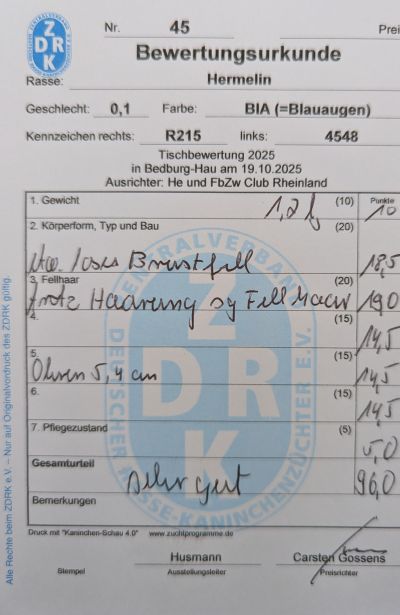 ZENTRALVERBAND
ZDRK
Nr. 45 Prei
Bewertungsurkunde
Rasse: Hermelin
Geschlecht: 0,1 Farbe: BlA (=Blauaugen)
Kennzeichen rechts: R215 links: 4548
Tischbewertung 2025
in Bedburg-Hau am 19.10.2025
Ausrichter: He und FbZw Club Rheinland
1. Gewicht 1,2 kg (10) Punkte 10
2. Körperform, Typ und Bau (20)
etw. loses Brustfell 18,5
3. Fellhaar (20)
trotz Haarung sg Fellhaar 19,0
4. (15)
14,5
5. (15)
Ohren 5,4 cm 14,5
6. (15)
14,5
7. Pflegezustand (5)
5,0
Gesamturteil sehr gut 96,0
Bemerkungen
ZENTRALVERBAND
ZDRK
DEUTSCHER RASSE-KANINCHENZÜCHTER E.V.
Druck mit "Kaninchen-Schau 4.0" www.zuchtprogramme.de
Husmann Carsten Gossens
Stempel Ausstellungsleiter Preisrichter
Alle Rechte beim ZDRK e.V. – Nur auf Originalvordruck des ZDRK gültig.